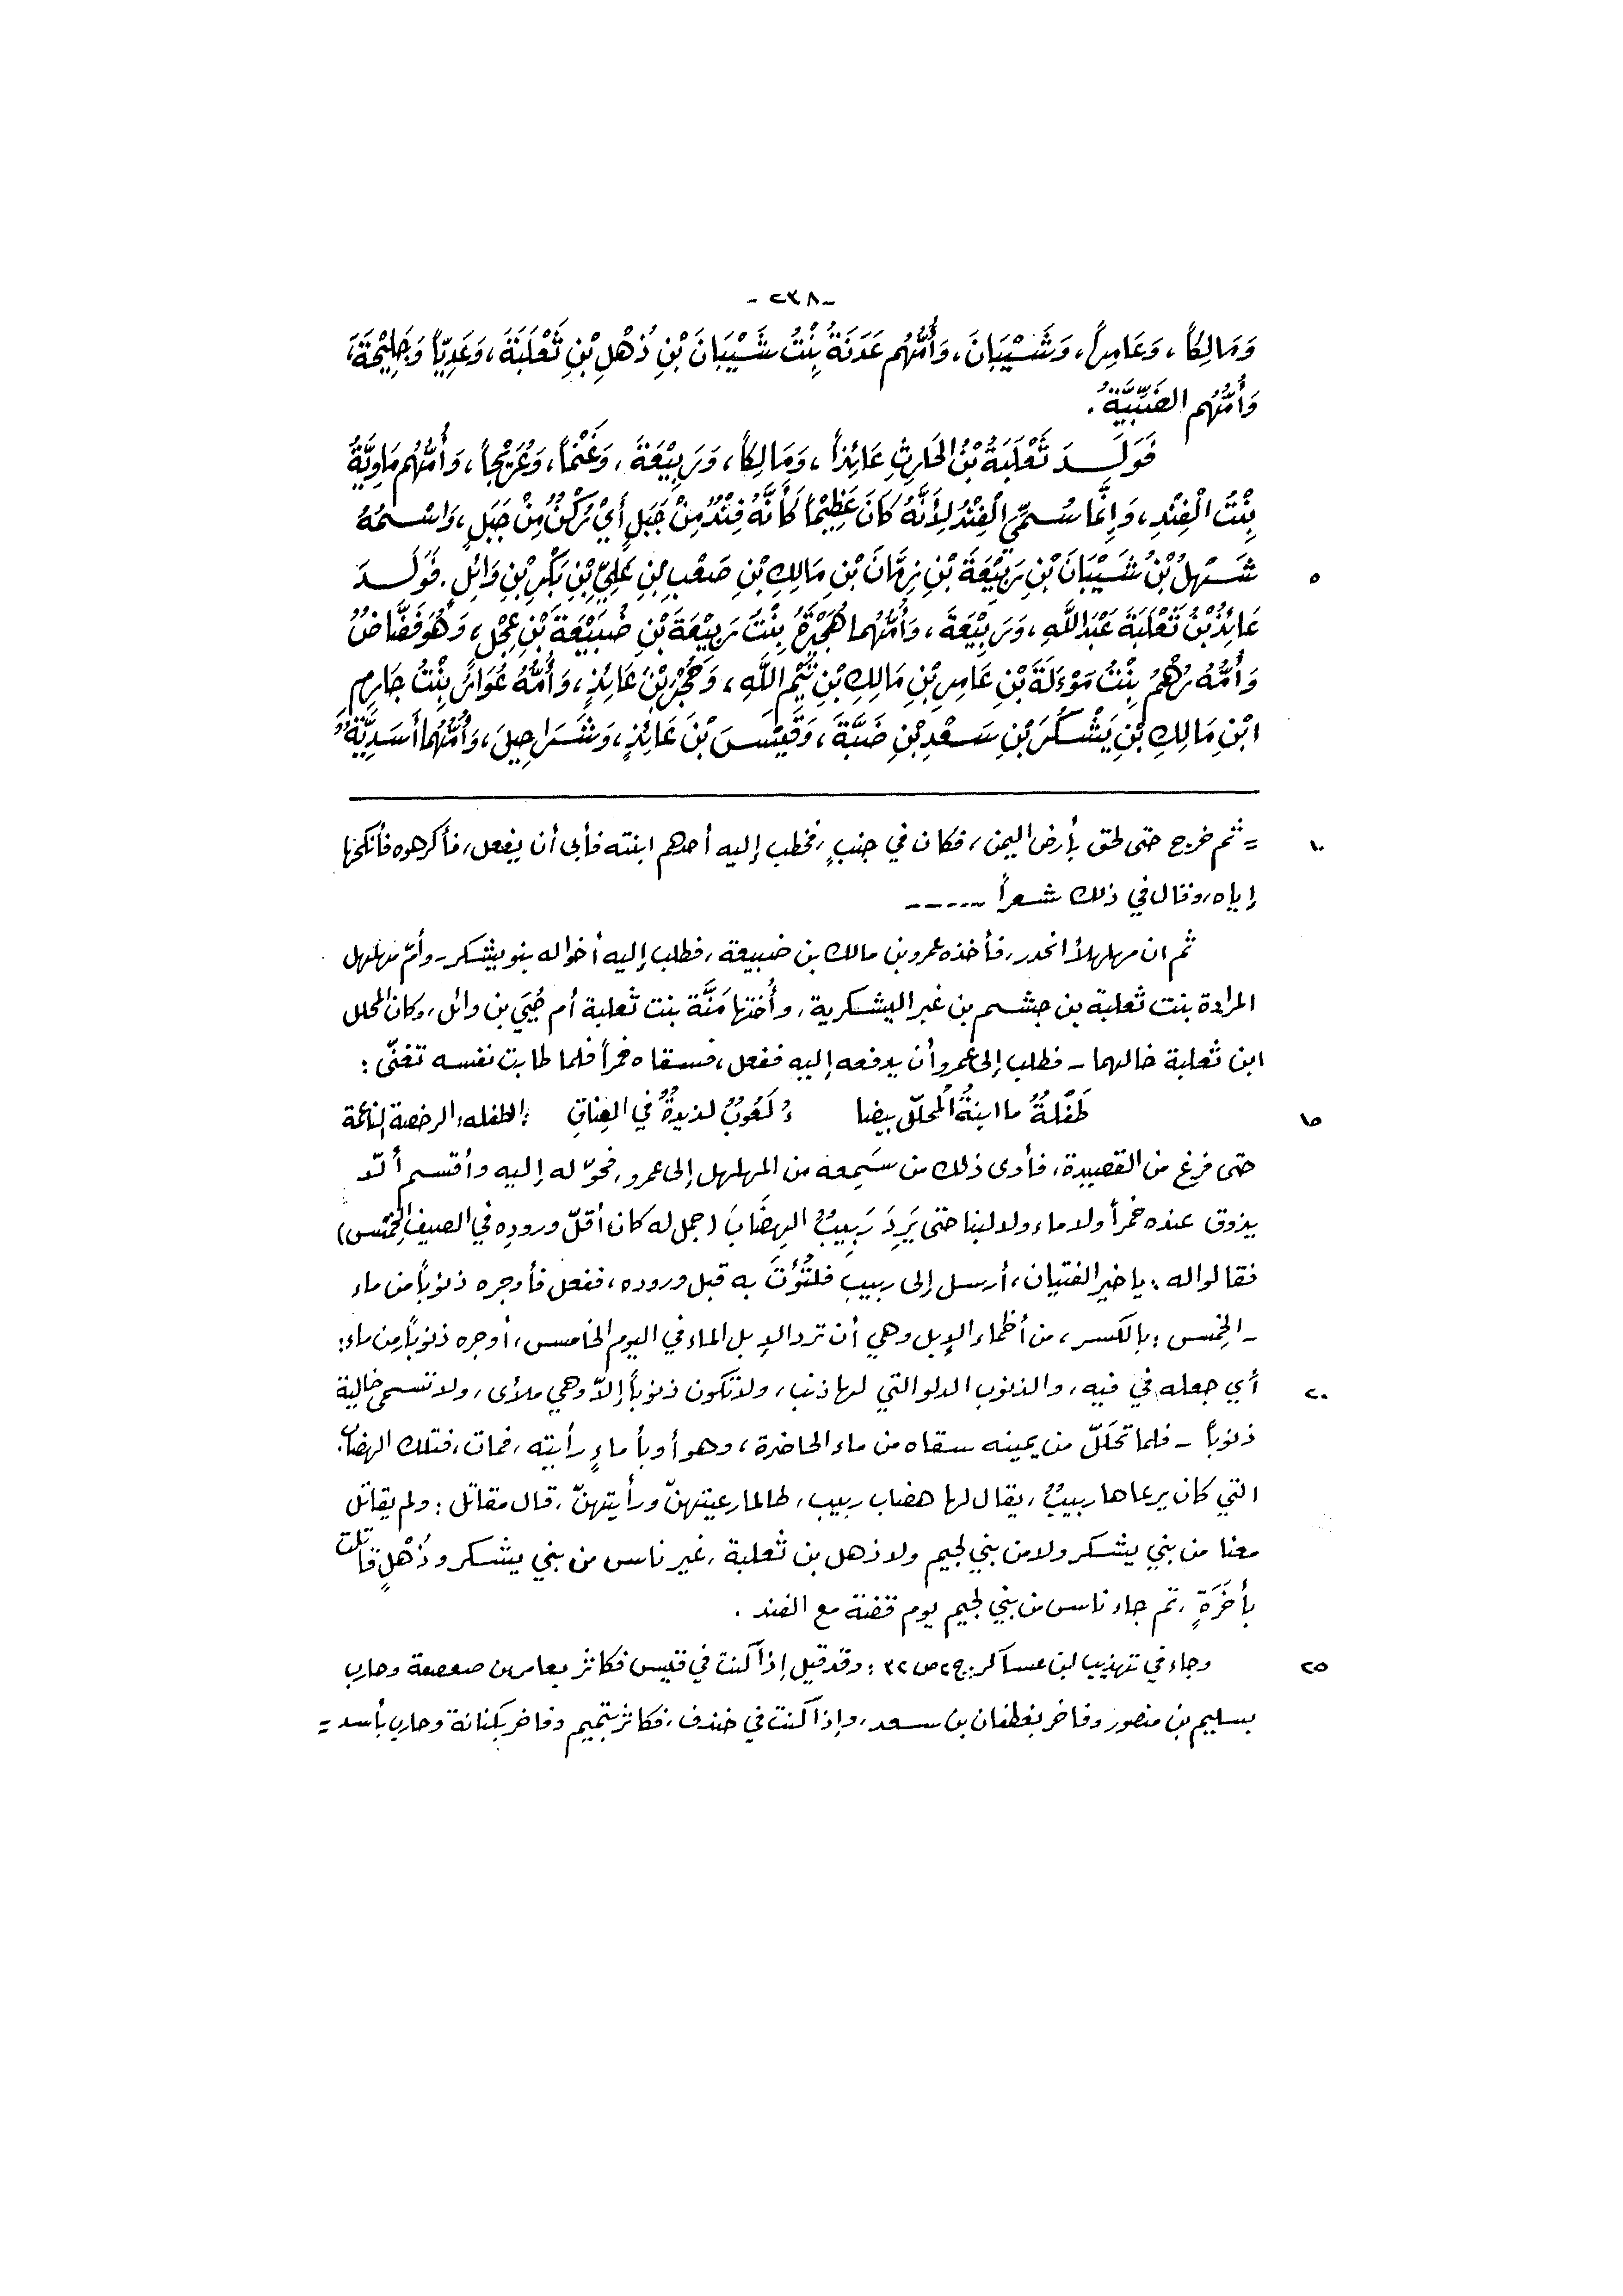 -٢٣٨-
وَمَالِكاً، وَعَامِراً، وَشَيْبَانَ، وَأُمُّهُم عَدَنَةُ بِنْتُ شَيْبَانَ بْنِ ذُهْلِ بْنِ ثَعْلَبَةَ، وَعَدِيّاً وَجَلِيْحَةَ،
وَأُمُّهُم الضَّبِّيَّةُ.
فَوَلَدَ ثَعْلَبَةُ بْنُ الحَارِثِ عَائِذاً، وَمَالِكاً، وَرَبِيْعَةَ، وَغَنْماً، وَعُرَيْجاً، وَأُمُّهُم مَاوِيَّةُ
بِنْتُ الْفِنْدِ، وَإِنَّمَا سُمِّيَ الْفِنْدُ لِأَنَّهُ كَانَ عَظِيْماً كَأَنَّهُ فِنْدٌ مِنْ جَبَلٍ أَيْ رُكْنٌ مِنْ جَبَلٍ، وَاسْمُهُ
شَهْلُ بْنُ شَيْبَانَ بْنِ رَبِيْعَةَ بْنِ زِمَّانَ بْنِ مَالِكِ بْنِ صَعْبِ بْنِ عَلِيِّ بْنِ بَكْرِ بْنِ وَائِلٍ. فَوَلَدَ
٥
عَائِذُ بْنُ ثَعْلَبَةَ عَبْدَ اللَّهِ، وَرَبِيْعَةَ، وَأُمُّهُمَا هُجَيْرَةُ بِنْتُ رَبِيْعَةَ بْنِ ضُبَيْعَةَ بْنِ عِجْلٍ، وَهُوَ فَضَّاضٌ
وَأُمُّهُ رُهْمُ بِنْتُ مَوْءَلَةَ بْنِ عَامِرِ بْنِ مَالِكِ بْنِ تَيْمِ اللَّهِ، وَحُجْرَ بْنَ عَائِذٍ، وَأُمُّهُ عُوَارُ بِنْتُ جَارِمِ
ابْنِ مَالِكِ بْنِ يَشْكُرَ بْنِ سَعْدِ بْنِ ضَبَّةَ، وَقَيْسَ بْنَ عَائِذٍ، وَشَرَاحِيلَ، وَأُمُّهُمَا أَسَدِيَّةٌ وَ
= ثم خرج حتى لحق بأرض اليمن، فكان في جنبٍ، فخطب إليه أحدهم ابنته فأبى أن يفعل، فأكرهوه فأنكحها
١٠
إياه، وقال في ذلك شعراً -----
ثم ان مهلهلاً انحدر، فأخذه عمرو بن مالك بن ضبيعة، فطلب إليه أخواله بنو يشكر - وأمّ مهلهل
المرادة بنت ثعلبة بن جشم بن غبر اليشكرية، وأُختها مَنَّة بنت ثعلبة أم حُيَي بن وائل، وكان المحلل
ابن ثعلبة خالهما - فطلب إلى عمرو أن يدفعه إليه ففعل، فسقاه خمراً فلما طابت نفسه تغنّى:
طَفْلةٌ ما ابنةُ المُحلّل بيضا ءُ لَعُوبٌ لذيذةٌ في العِناقِ :الطفله: الرخصة الناعمة
١٥
حتى فرغ من القصيدة، فأدى ذلك من سَمِعه من المهلهل إلى عمرو، فحوّله إليه وأقسم ألّا
يذوق عنده خمراً ولا ماء ولا لبنا حتى يَرِدَ رَبِيبٌ الهِضَابَ (جمل له كان أقلّ وروده في الصيف الخِمْس)
فقالوا له: يا خير الفتيان، أرسل إلى ربيب فلتُؤْتَ به قبل وروده، ففعل فأوجره ذنوباً من ماء
- الخِمس: بالكسر، من أظماء الإبل وهي أن ترد الإبل الماء في اليوم الخامس، أوجره ذنوباً من ماء:
أي جعله في فيه، والذنوب الدلو التي لها ذنب، ولا تكون ذنوباً إلاّ وهي ملأى، ولا تسمى خالية
٢٠
ذنوباً - فلما تحَلّل من يمينه سقاه من ماء الحاضرة، وهو أوبأ ماءٍ رأيته، فمات، فتلك الهضاب
التي كان يرعاها ربيبٌ، يقال لها هضاب ربيب، لطالما رعيتهنّ ورأيتهنّ، قال مقاتل: ولم يقاتل
معنا من بني يشكر ولا من بني لجيم ولا ذهل بن ثعلبة، غير ناس من بني يشكر وذُهْلٍ قاتلت
بأخَرَةٍ، ثم جاء ناس من بني لجيم يوم قضة مع الفند.
وجاء في تهذيب ابن عساكر: ج٢ ص ٣٢: وقد قيل إذا كنت في قيس فكاثر بعامر بن صعصعة وحارب
٢٥
بسليم بن منصور وفاخر بغطفان بن سعد، وإذا كنت في خندف، فكاثر بتميم وفاخر بكنانة وحارب بأسد =